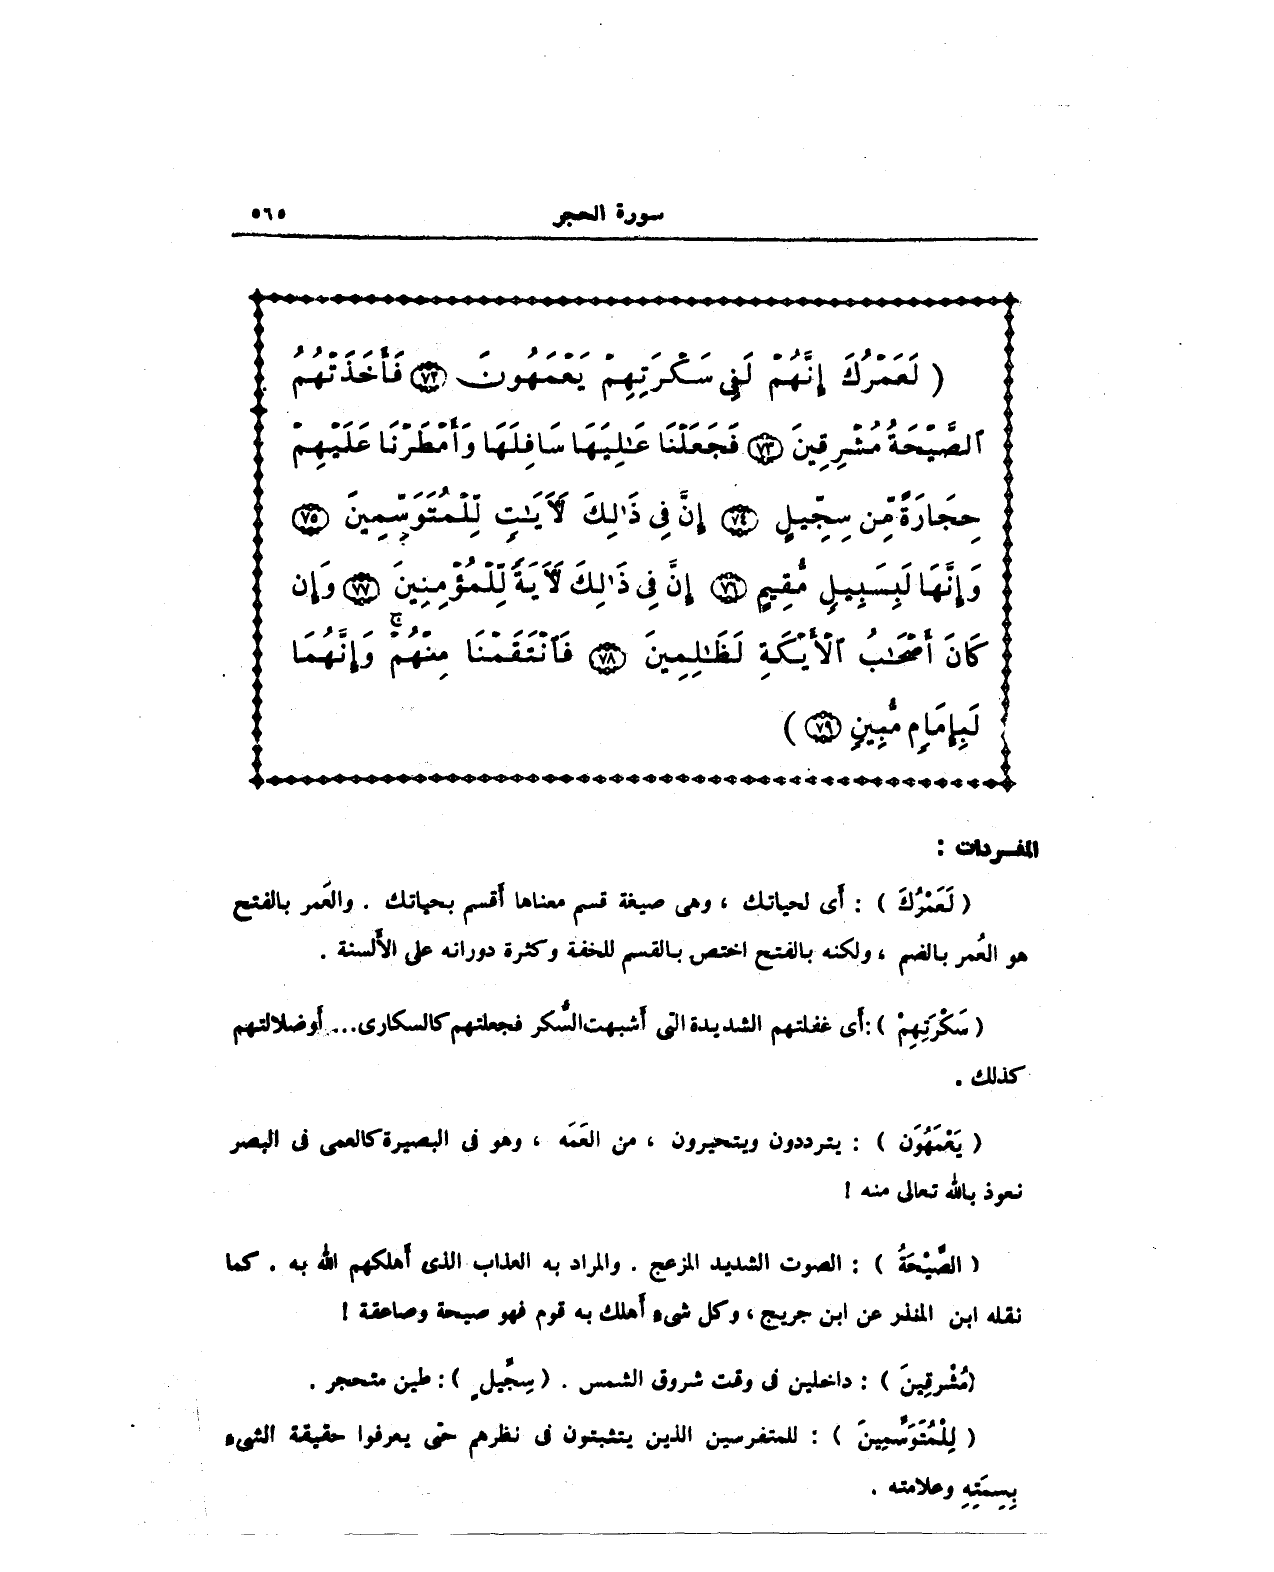 سورة الحجر ٥٦٥
( لَعَمْرُكَ إِنَّهُمْ لَفِى سَكْرَتِهِمْ يَعْمَهُونَ ﴿٧٢﴾ فَأَخَذَتْهُمُ
ٱلصَّيْحَةُ مُشْرِقِينَ ﴿٧٣﴾ فَجَعَلْنَا عَـٰلِيَهَا سَافِلَهَا وَأَمْطَرْنَا عَلَيْهِمْ
حِجَارَةً مِّن سِجِّيلٍ ﴿٧٤﴾ إِنَّ فِى ذَٰلِكَ لَـَٔايَـٰتٍ لِّلْمُتَوَسِّمِينَ ﴿٧٥﴾
وَإِنَّهَا لَبِسَبِيلٍ مُّقِيمٍ ﴿٧٦﴾ إِنَّ فِى ذَٰلِكَ لَـَٔايَةً لِّلْمُؤْمِنِينَ ﴿٧٧﴾ وَإِن
كَانَ أَصْحَـٰبُ ٱلْأَيْكَةِ لَظَـٰلِمِينَ ﴿٧٨﴾ فَٱنتَقَمْنَا مِنْهُمْ ۚ وَإِنَّهُمَا
لَبِإِمَامٍ مُّبِينٍ ﴿٧٩﴾ )
المفـردات :
( لَعَمْرُكَ ) : أَى لحياتك ، وهى صيغة قسم معناها أُقسم بحياتك . والعَمر بالفتح
هو العُمر بالضم ، ولكنه بالفتح اختص بالقسم للخفة وكثرة دورانه على الأَلسنة .
( سَكْرَتِهِمْ ) : أَى غفلتهم الشديدة التى أَشبهت السُّكر فجعلتهم كالسكارى... أَو ضلالتهم
كذلك .
( يَعْمَهُون ) : يترددون ويتحيرون ، من العَمَه ، وهو فى البصيرة كالعمى فى البصر
نعوذ بالله تعالى منه !
( الصَّيْحَةُ ) : الصوت الشديد المزعج . والمراد به العذاب الذى أَهلكهم الله به . كما
نقله ابن المنذر عن ابن جريج ، وكل شىء أَهلك به قوم فهو صيحة وصاعقة !
(مُشْرِقِينَ ) : داخلين فى وقت شروق الشمس . ( سِجِّيلٍ ) : طين متحجر .
( لِلْمُتَوَسِّمِينَ ) : للمتفرسين الذين يتثبتون فى نظرهم حتى يعرفوا حقيقة الشىء
بِسِمَتِهِ وعلامته .